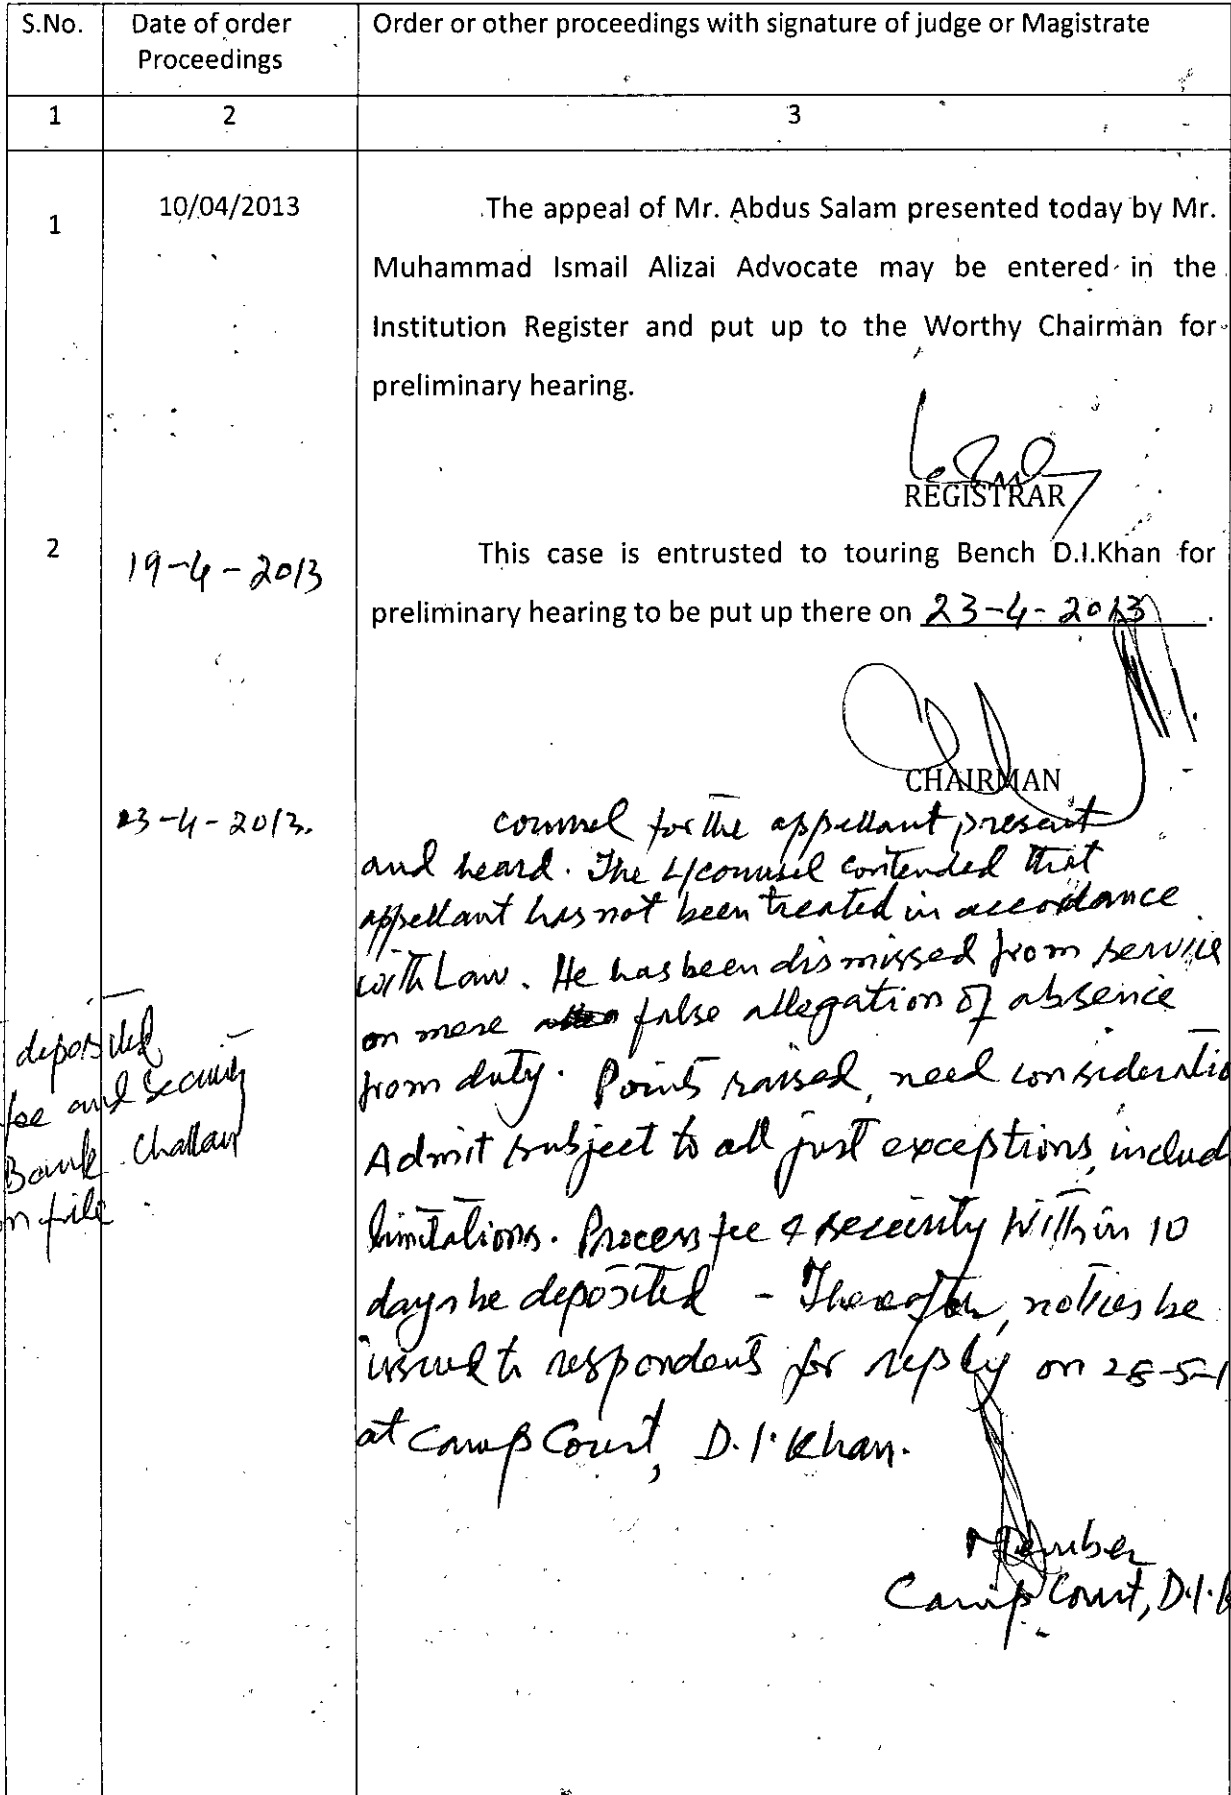 S.No. Date of order Order or other proceedings with signature of judge or Magistrate
Proceedings
1 2 3
1 10/04/2013 The appeal of Mr. Abdus Salam presented today by Mr.
Muhammad Ismail Alizai Advocate may be entered in the
Institution Register and put up to the Worthy Chairman for
preliminary hearing.
REGISTRAR
2 19-4-2013 This case is entrusted to touring Bench D.I.Khan for
preliminary hearing to be put up there on 23-4-2013.
CHAIRMAN
23-4-2013. counsel for the appellant present
and heard. The L/counsel contended that
appellant has not been treated in accordance
with Law. He has been dismissed from service
on mere false allegation of absence
from duty. Points raised, need consideratio
Admit subject to all just exceptions, includ
limitations. Process fee & security within 10
days be deposited - Thereafter, notices be
issued to respondents for reply on 28-5-1
at Camp Court, D.I.Khan.
Member
Camp Court, D.I.K
deposited
fee and security
Bank Challan
n file